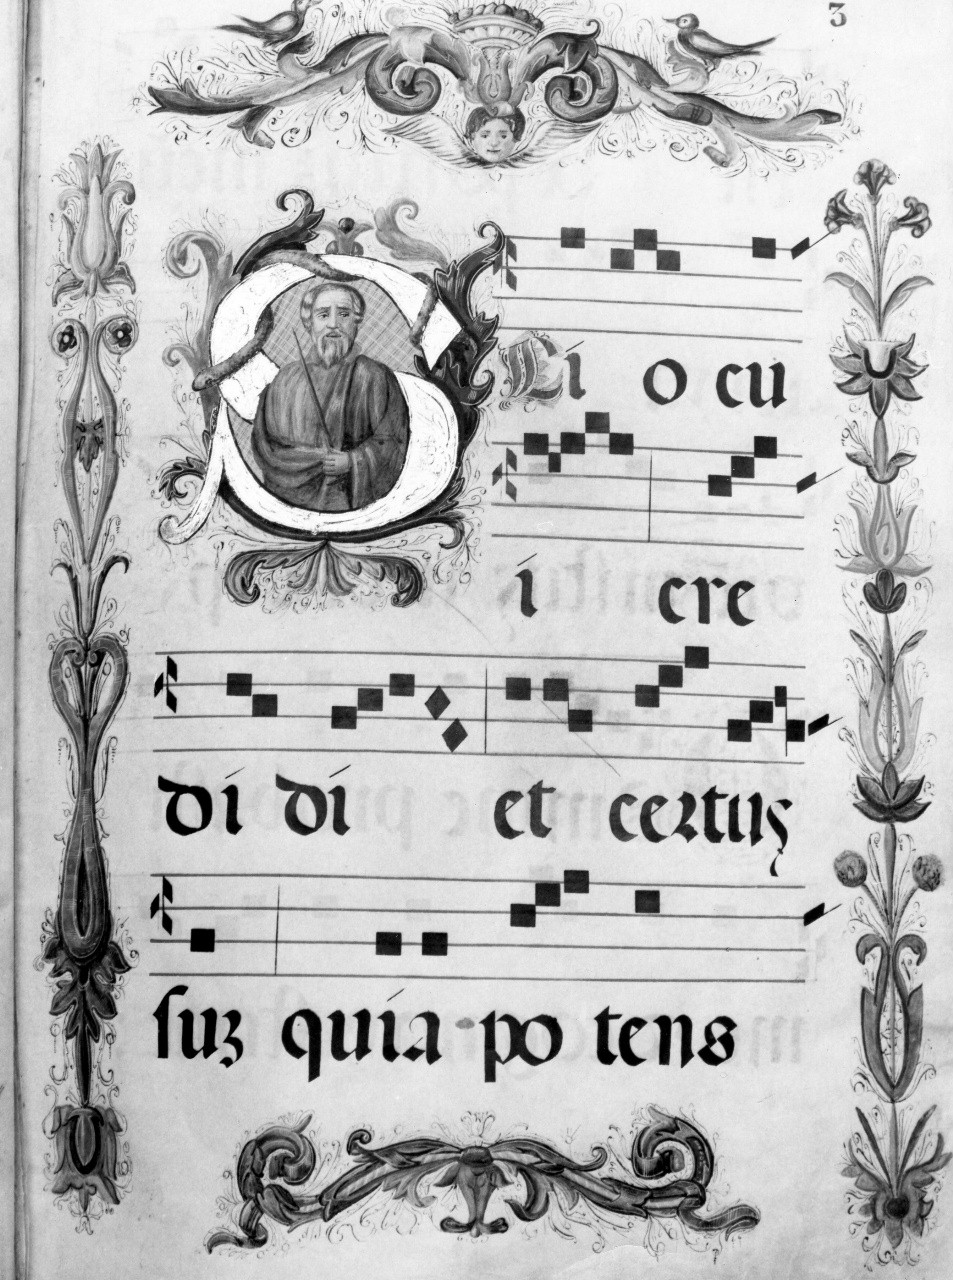 3
SCi o cu
i cre
di di et certus
suz quia po tens